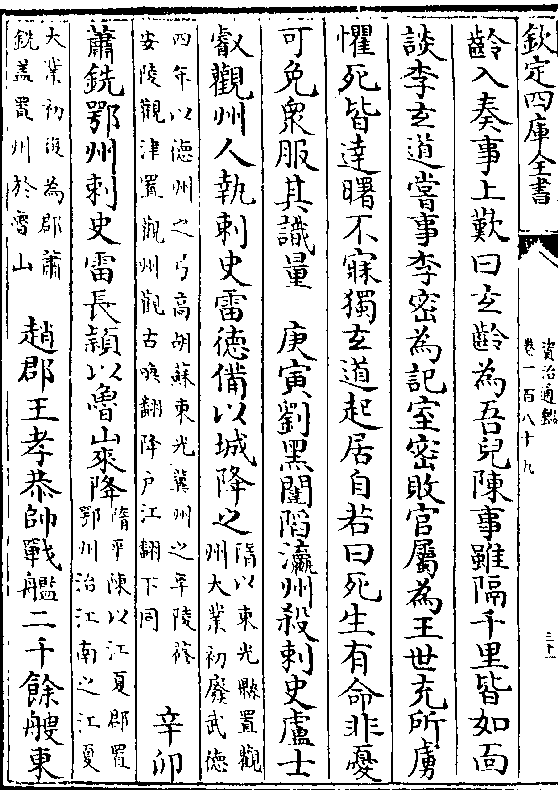 欽定四庫全書
資治通鑑
卷一百八十九
三十一
齡入奏事上歎曰玄齡為吾兒陳事雖隔千里皆如面
談李玄道嘗事李密為記室密敗官屬為王世充所虜
懼死皆達曙不寐獨玄道起居自若曰死生有命非憂
可免衆服其識量　庚寅劉黑闥䧟瀛州殺刺史盧士
叡觀州人執刺史雷德備以城降之隋以東光縣置觀
州大業初廢武德
四年以德州之弓高胡蘇東光冀州之阜陵蓨
安陵觀津置觀州觀古喚翻降户江翻下同
辛卯
蕭銑鄂州刺史雷長頴以魯山來降隋平陳以江夏郡置
鄂州治江南之江夏
大業初復為郡蕭
銑盖置州於魯山
趙郡王孝恭帥戰艦二千餘艘東